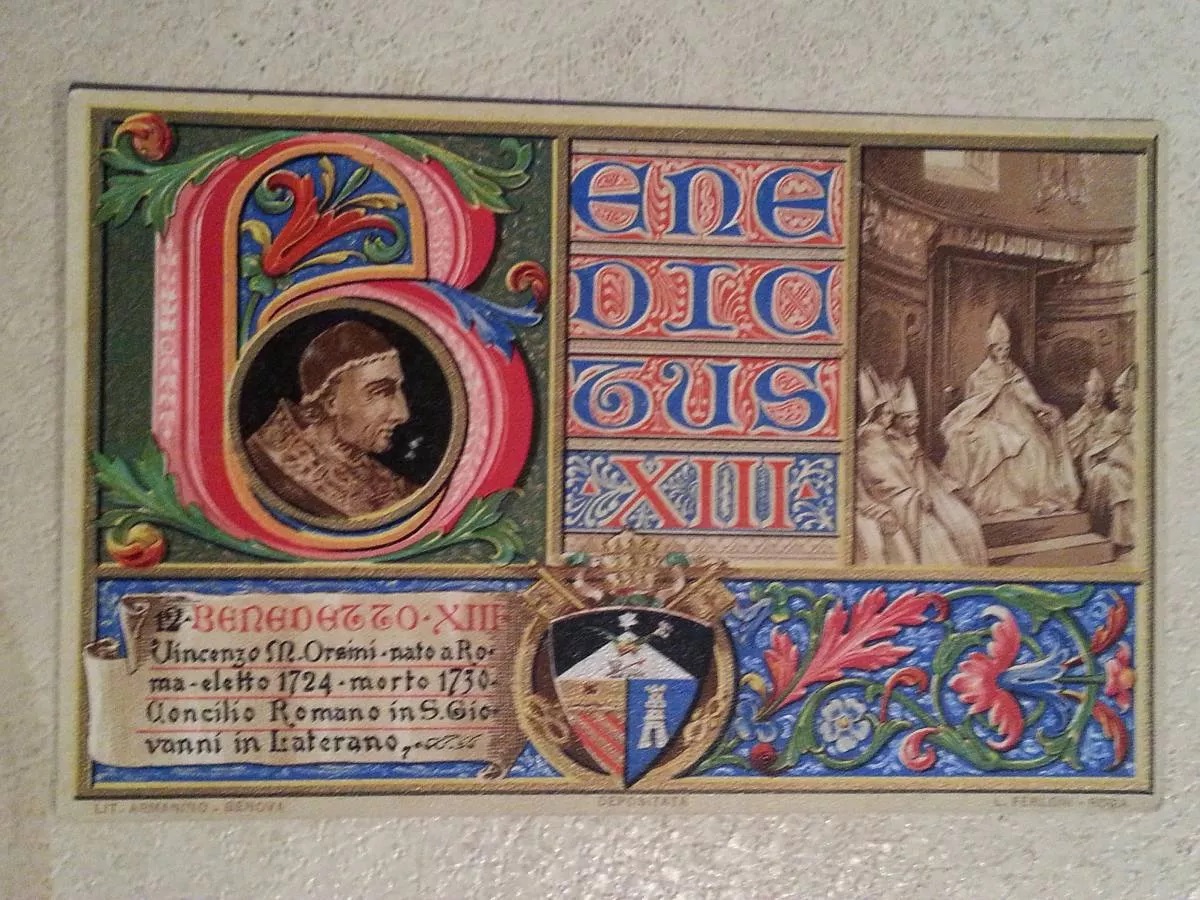 BENEDICTUS XIII
BENEDETTO·XIII
Vincenzo M. Orsini·nato a Ro-
ma·eletto 1724·morto 1730·
Concilio Romano in S. Gio-
vanni in Laterano,
LIT. ARMANINO - GENOVA
DEPOSITATA
ROMA